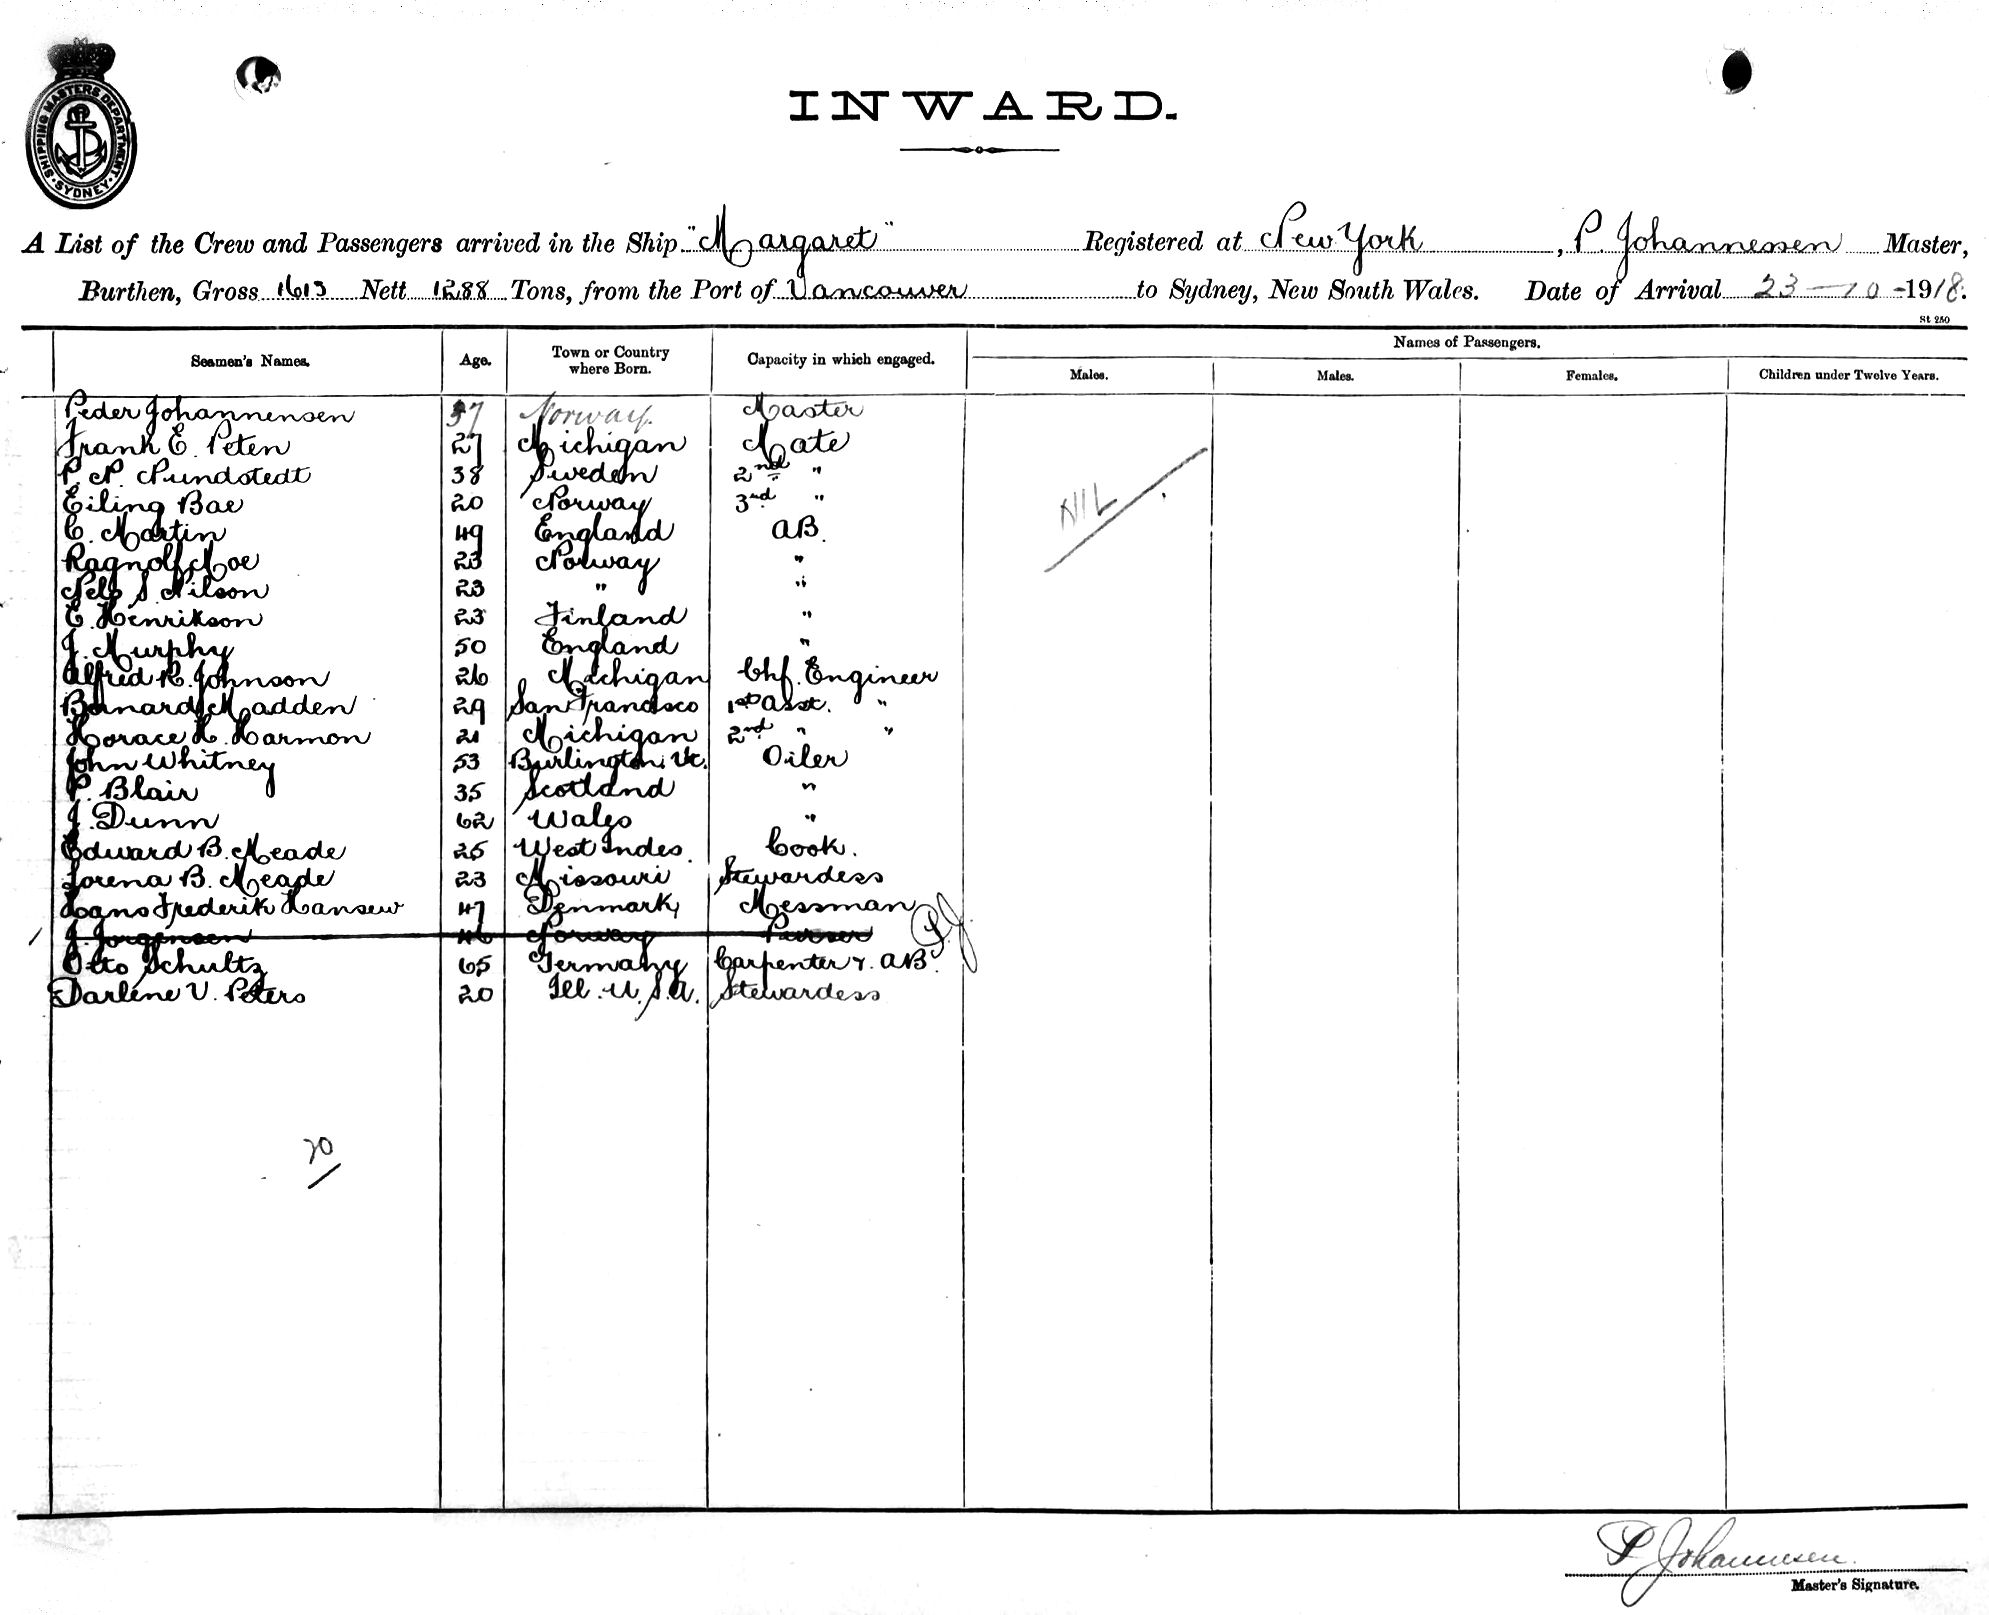 SHIPPING MASTERS DEPARTMENT
· SYDNEY ·
INWARD.
A List of the Crew and Passengers arrived in the Ship "Margaret" Registered at New York, P. Johannessen Master,
Burthen, Gross 1613 Nett 1288 Tons, from the Port of Vancouver to Sydney, New South Wales. Date of Arrival 23-10-1918.
St 250
Seamen's Names. Age. Town or Country where Born. Capacity in which engaged. Names of Passengers.
Males. Males. Females. Children under Twelve Years.
Peder Johannensen 37 Norway. Master
Frank E. Peten 27 Michigan Mate
P. N. Nundstedt 38 Sweden 2nd "
Eiling Bae 20 Norway 3rd "
NIL
C. Martin 49 England AB.
Ragnolf Moe 23 Norway "
Nels S. Nilson 23 " "
E. Henrikson 23 Finland "
J. Murphy 50 England "
Alfred R. Johnson 26 Michigan Chf. Engineer
Bernard Madden 29 San Francisco 1st Asst. "
Horace H. Harmon 21 Michigan 2nd " "
John Whitney 53 Burlington. Vt. Oiler
P. Blair 35 Scotland "
J. Dunn 62 Wales "
Edward B. Meade 25 West Indes. Cook.
Lorena B. Meade 23 Missouri Stewardess
Hans Frederik Hansen 47 Denmark, Messman
J. Jorgensen 46 Norway Purser P.J.
Otto Schultz 65 Germany Carpenter & AB.
Darlene V. Peters 20 Ill. U.S.A. Stewardess
20
P Johannesen.
Master's Signature.